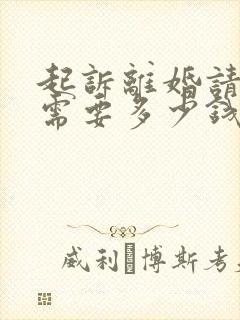 起訴離婚請
需要多少錢
威利 博斯考